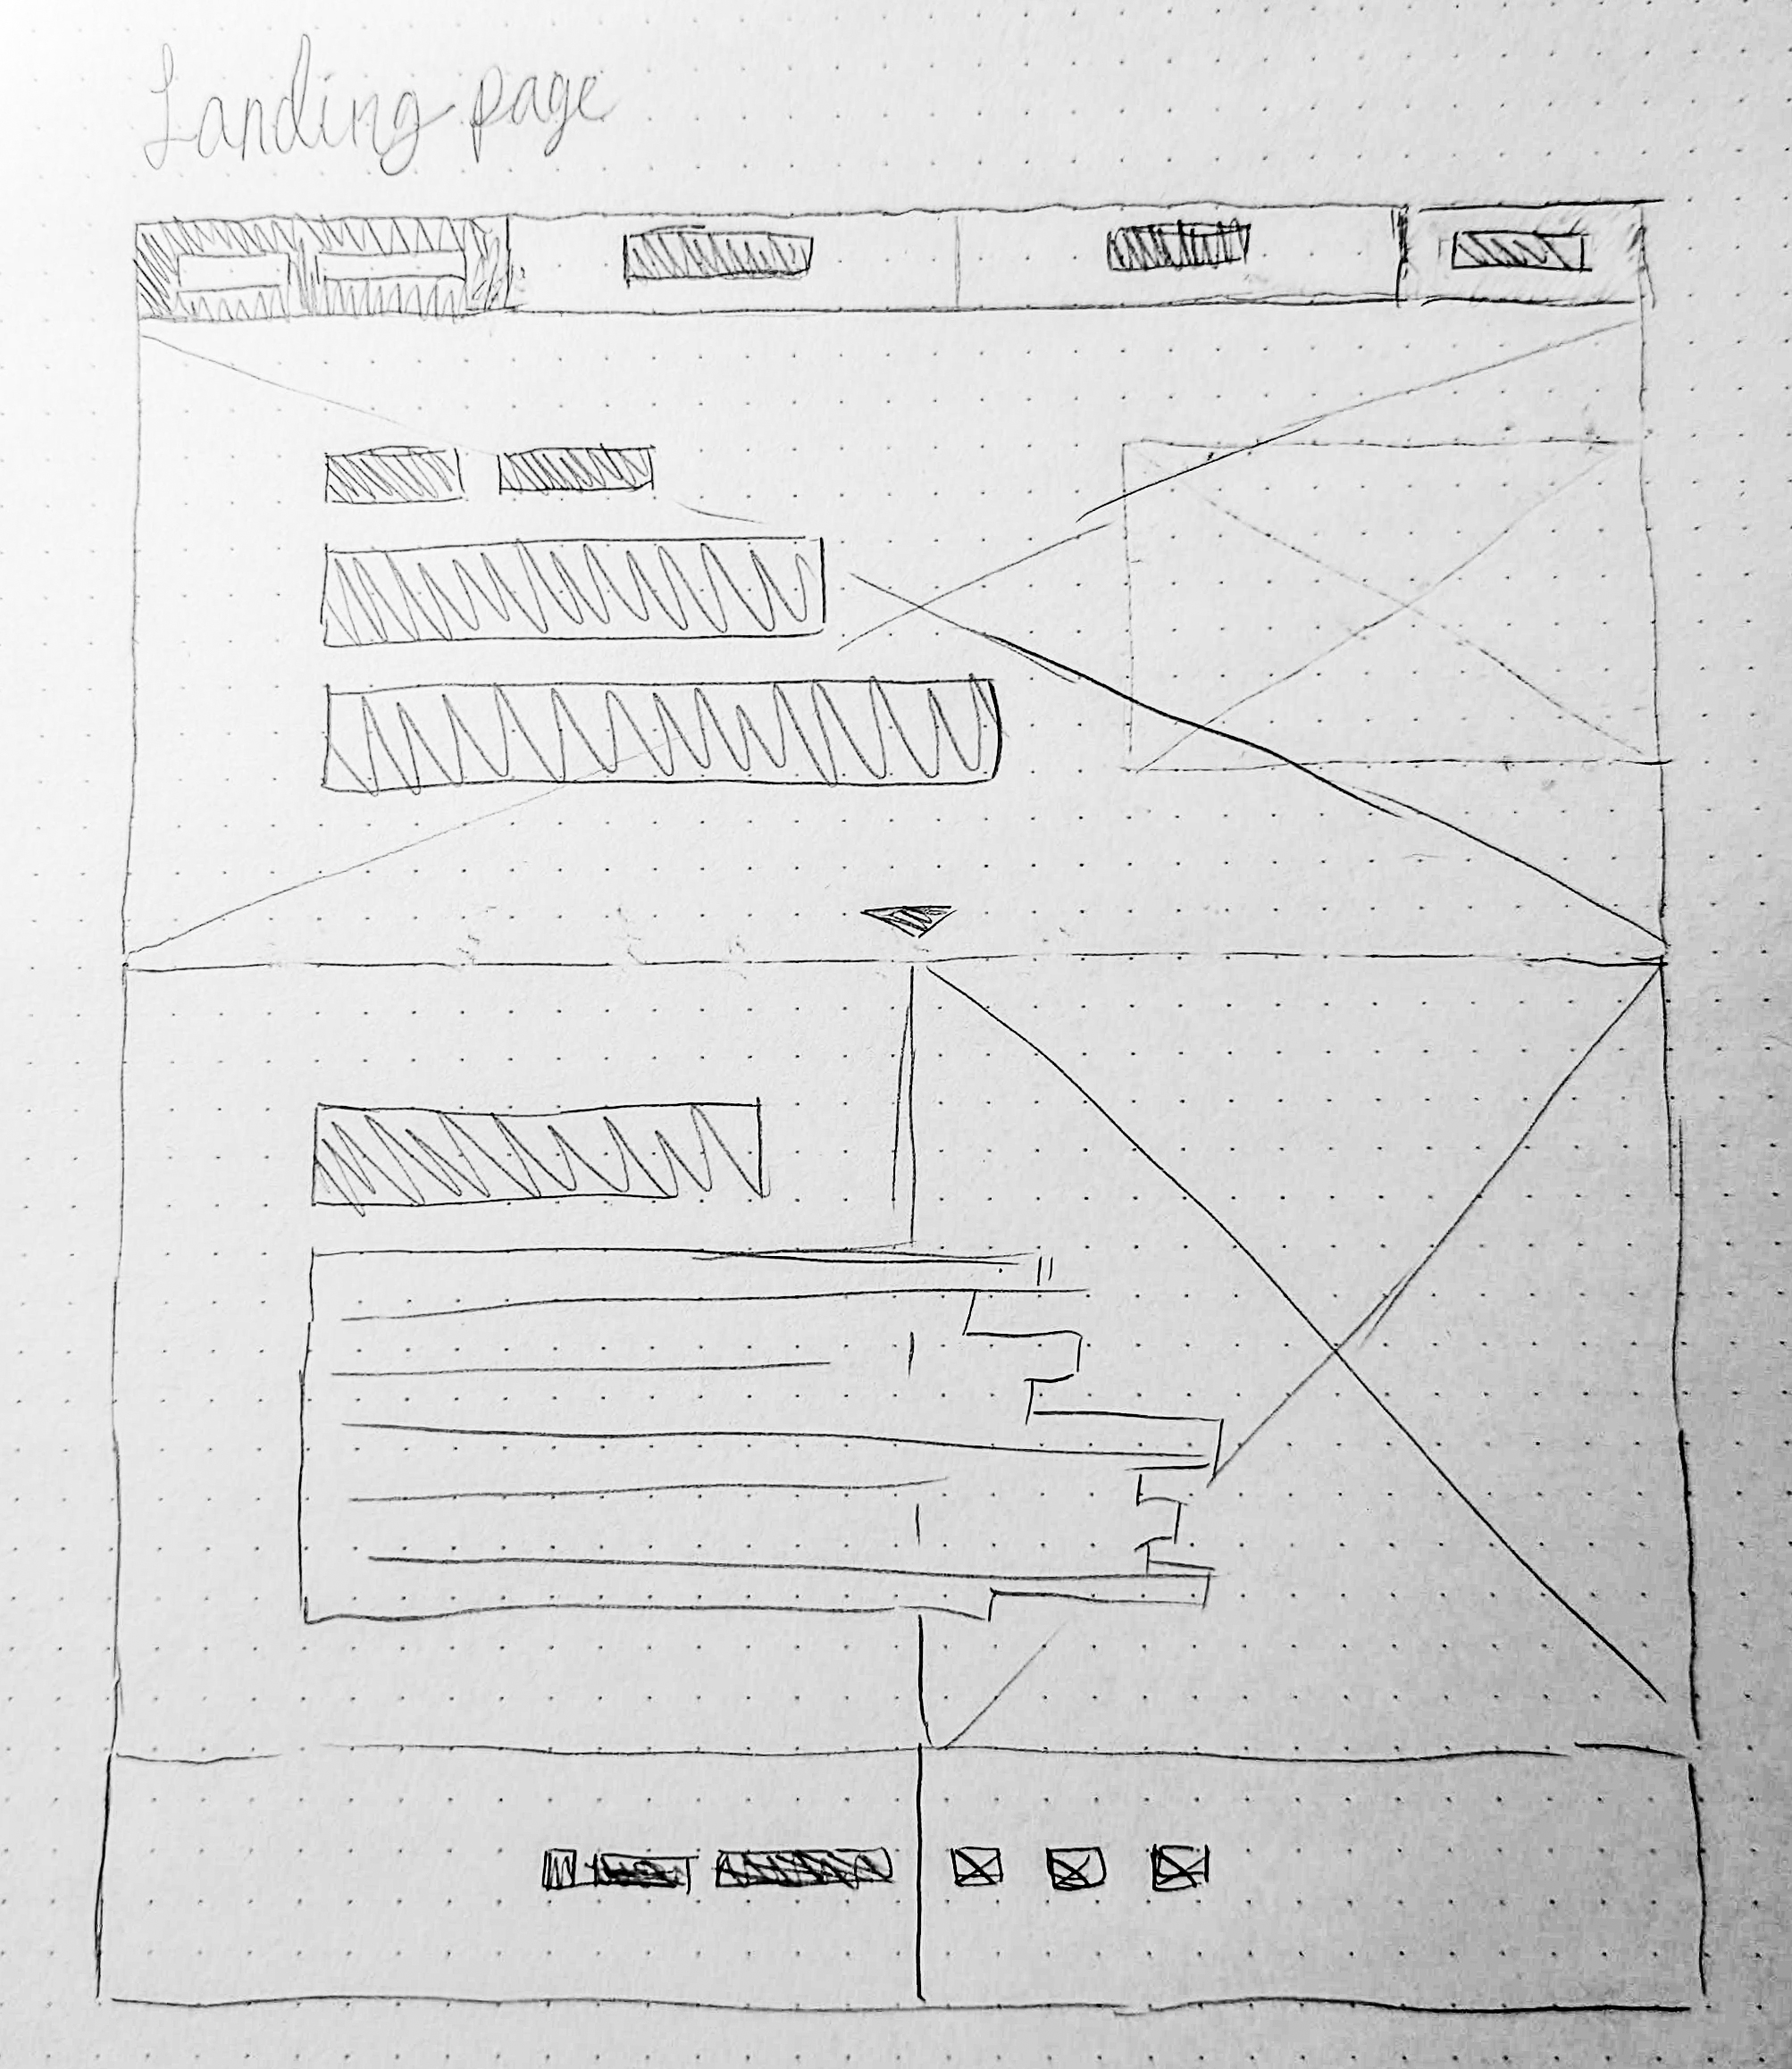 Landing page